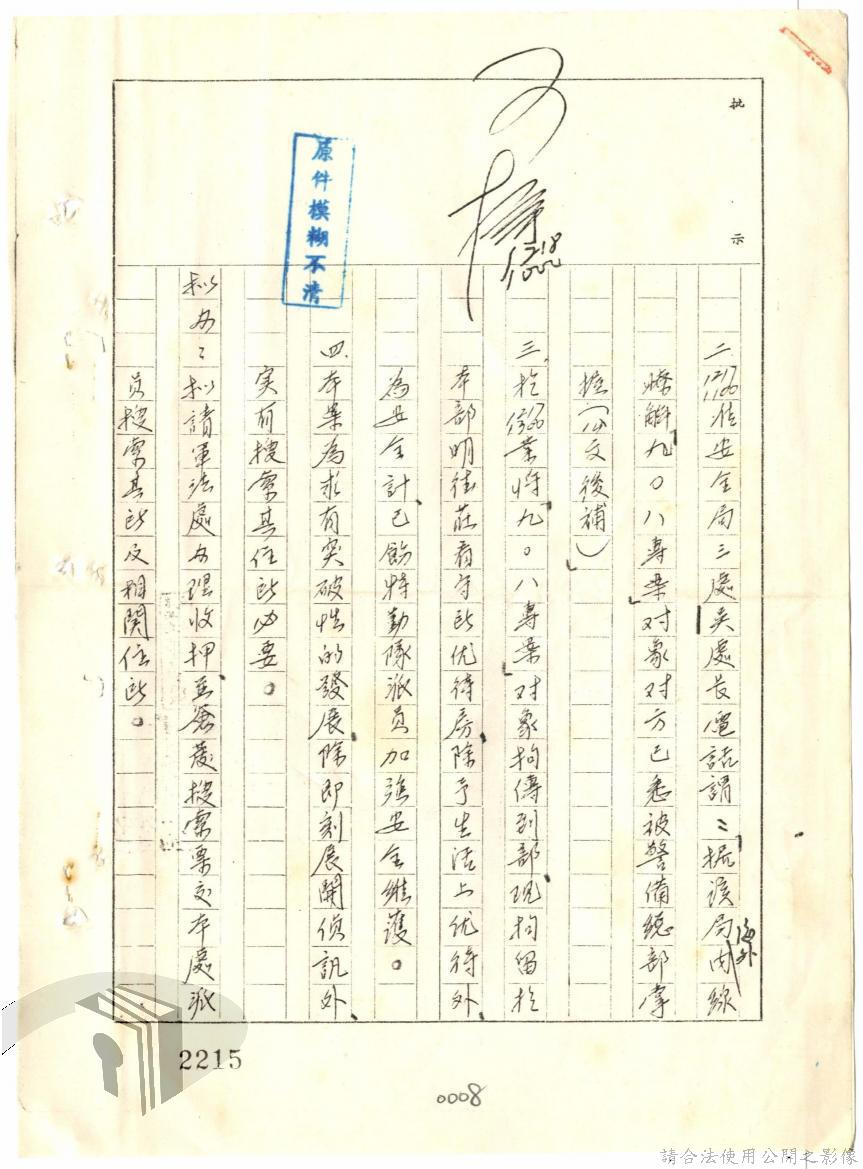 批示
可
1218
1000
原件模糊不清
二、1217 1100准安全局三處吳處長電話謂：「據該局海外內線
瞭解『九〇八專案』对象对方已悉被警備總部掌
握（公文後補）」
三、於1217 1300業将「九〇八專案」对象拘傳到部、現拘留於
本部明德莊看守所优待房、除予生活上优待外、
為安全計、已飭特勤隊派員加強安全維護。
四、本案為求有突破性的發展、除即刻展開偵訊外、
实有搜索其住所必要。
拟办：拟請軍法處办理收押、並簽發搜索票交本處派
員搜索其所及相関住所。
2215
0008
請合法使用公開之影像